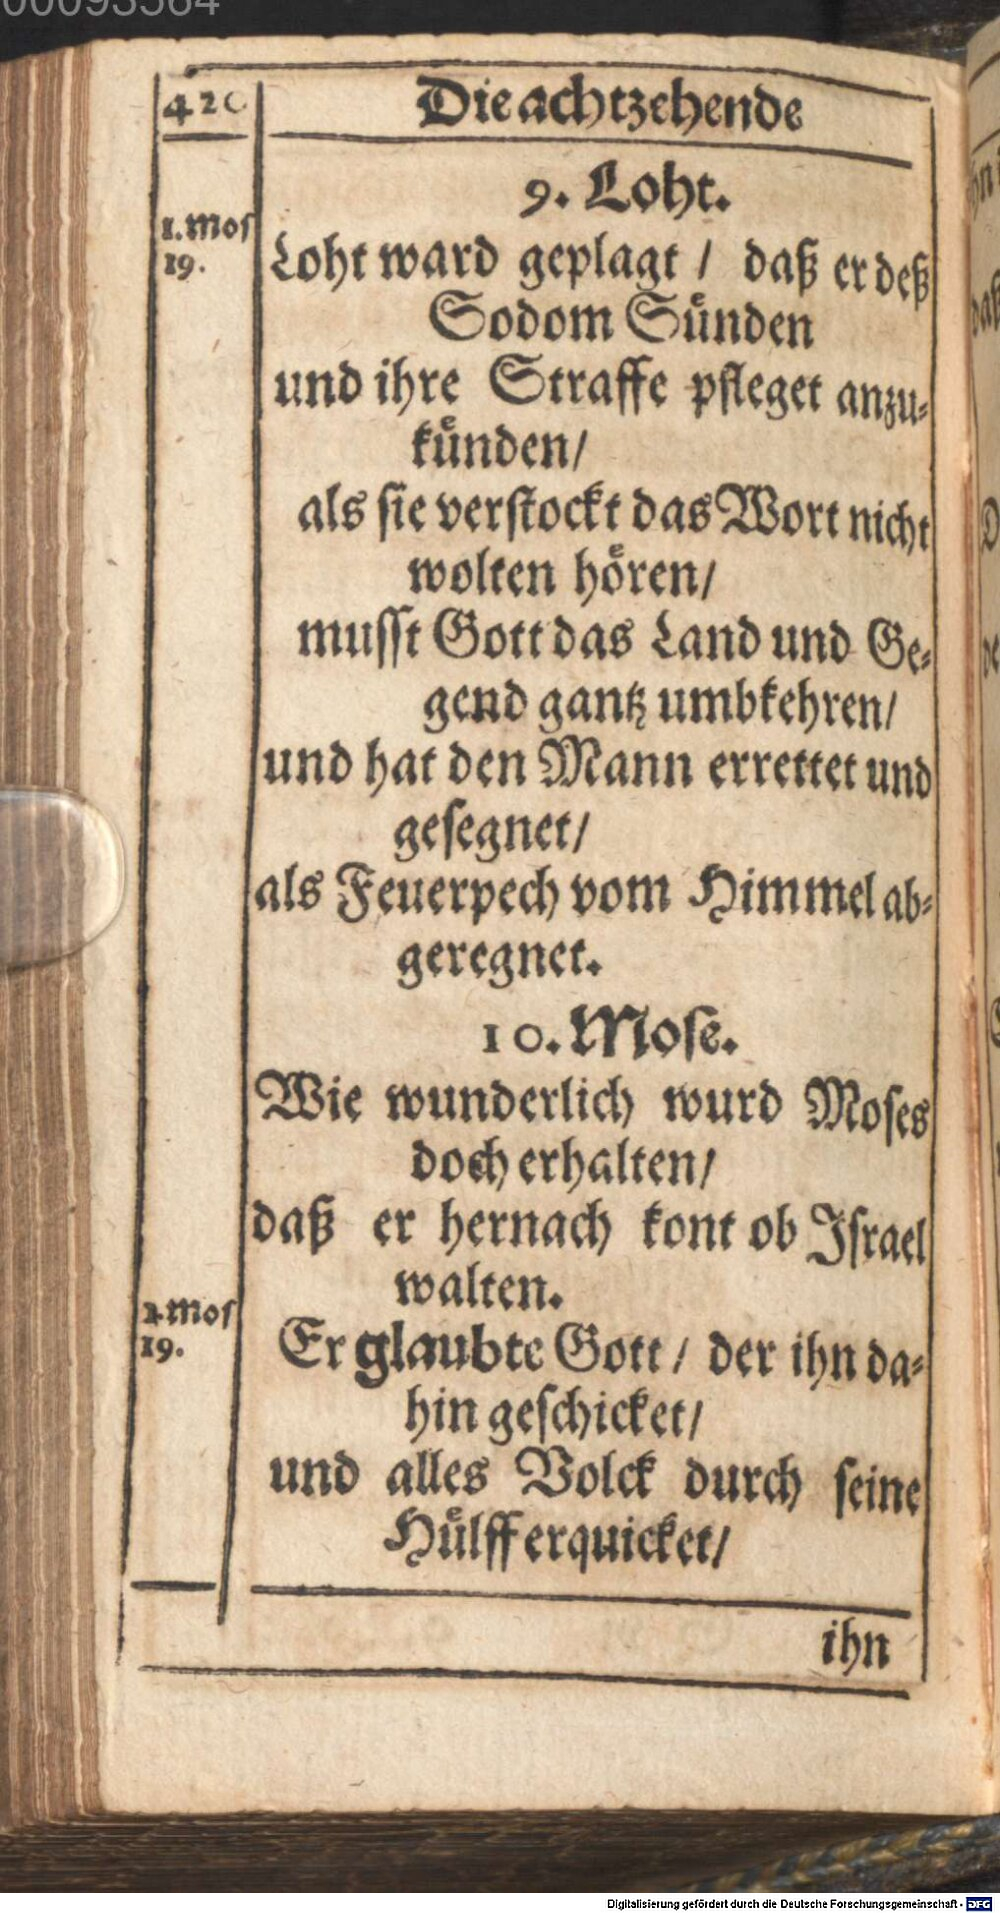 00093564
420
Die achtzehende
9. Loht.
1. Mos
19.
Loht ward geplagt / daß er deß
Sodom Suͤnden
und ihre Straffe pfleget anzu-
kuͤnden /
als sie verstockt das Wort nicht
wolten hoͤren /
musst Gott das Land und Ge-
gend gantz umbkehren /
und hat den Mann errettet und
gesegnet /
als Feuerpech vom Himmel ab-
geregnet.
10. Mose.
Wie wunderlich wurd Moses
doch erhalten /
daß er hernach kont ob Israel
walten.
2. Mos
19.
Er glaubte Gott / der ihn da-
hin geschicket /
und alles Volck durch seine
Huͤlff erquicket /
ihn
Digitalisierung gefördert durch die Deutsche Forschungsgemeinschaft - DFG